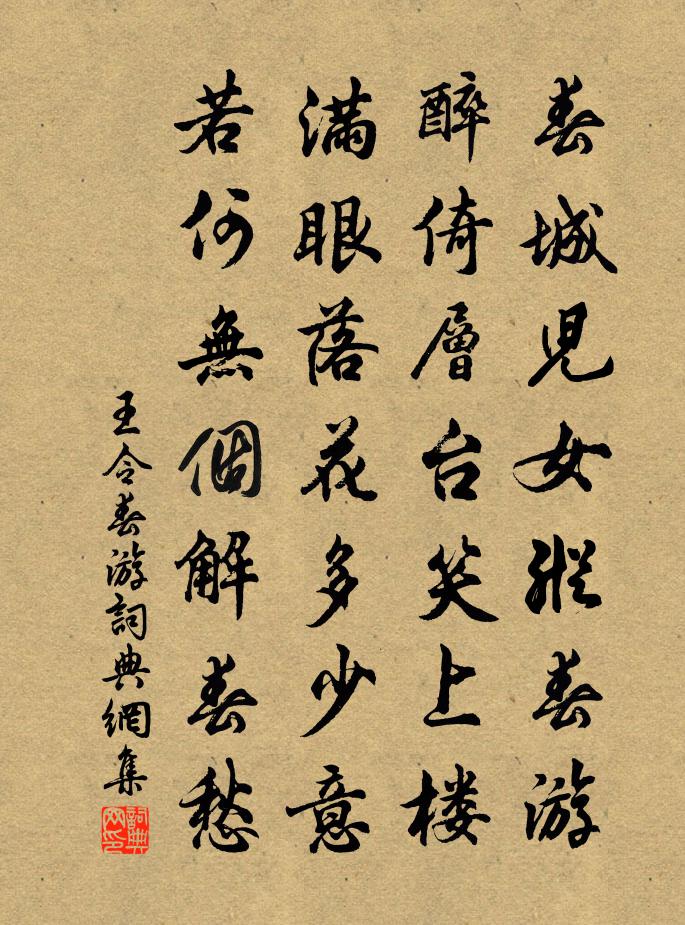 春城兒女縱春游
醉倚層台笑上楼
滿眼落花多少意
若何無個解春愁
王令春游詞典網集
詞典网印